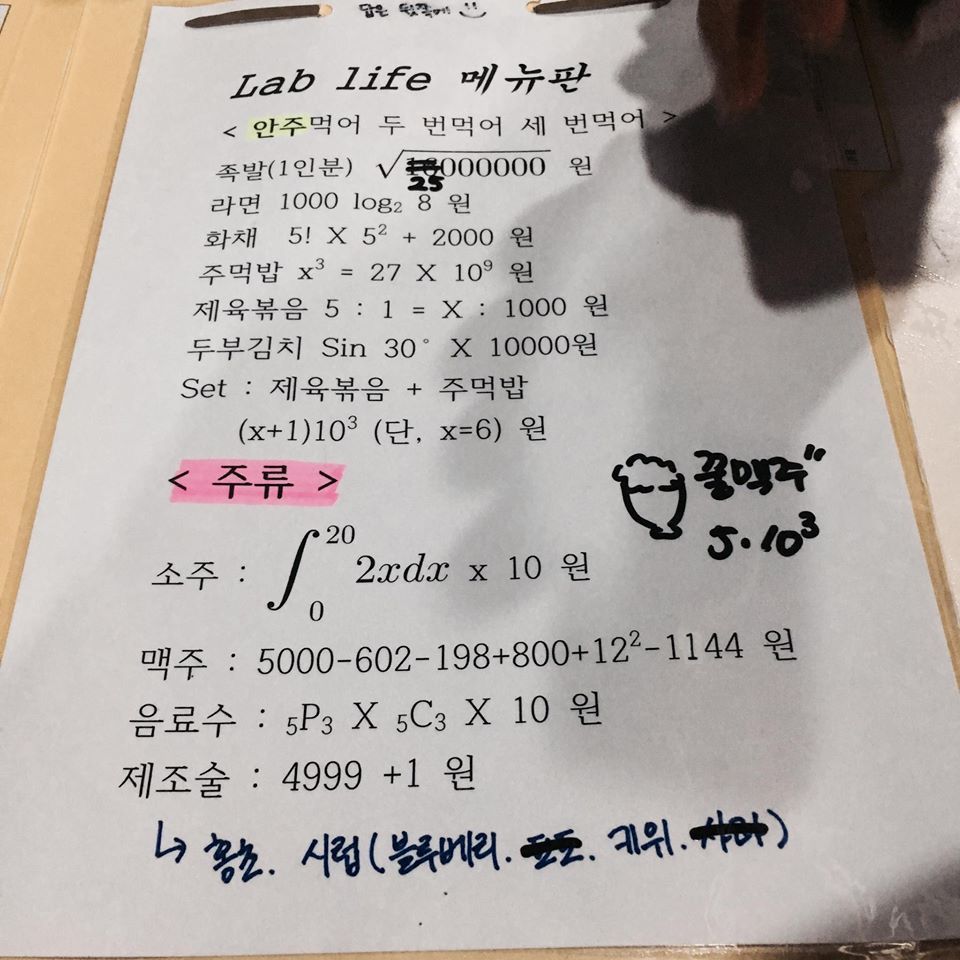 답은 뒷쪽에
Lab life 메뉴판
< 안주먹어 두 번먹어 세 번먹어 >
족발(1인분) √25000000 원
라면 1000 log₂ 8 원
화채 5! X 5² + 2000 원
주먹밥 x³ = 27 X 10⁹ 원
제육볶음 5 : 1 = X : 1000 원
두부김치 Sin 30° X 10000원
Set : 제육볶음 + 주먹밥
(x+1)10³ (단, x=6) 원
< 주류 >
꿀맥주"
5·10³
소주 : ∫₀²⁰ 2xdx x 10 원
맥주 : 5000-602-198+800+12²-1144 원
음료수 : ₅P₃ X ₅C₃ X 10 원
제조술 : 4999 +1 원
↳ 홍초. 시럽(블루베리. 키위. )